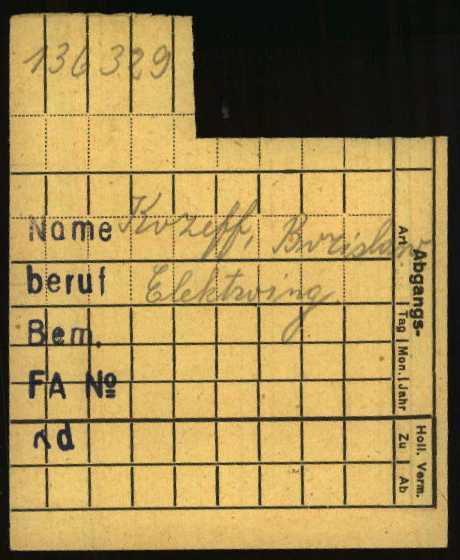 136329
Name Kozeff, Borislaw
beruf Elektroing
Bem.
FA №
Abgangs-
Art | Tag | Mon. | Jahr
Holl. Verm.
Zu | Ab